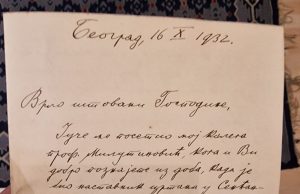 Београд, 16 X 1932.
Врло штовани Господине,
Јуче ме посетио мој колега
проф. Милутиновић, кога и Ви
добро познајете из доба, када је
био наставник цртања у Сенван-